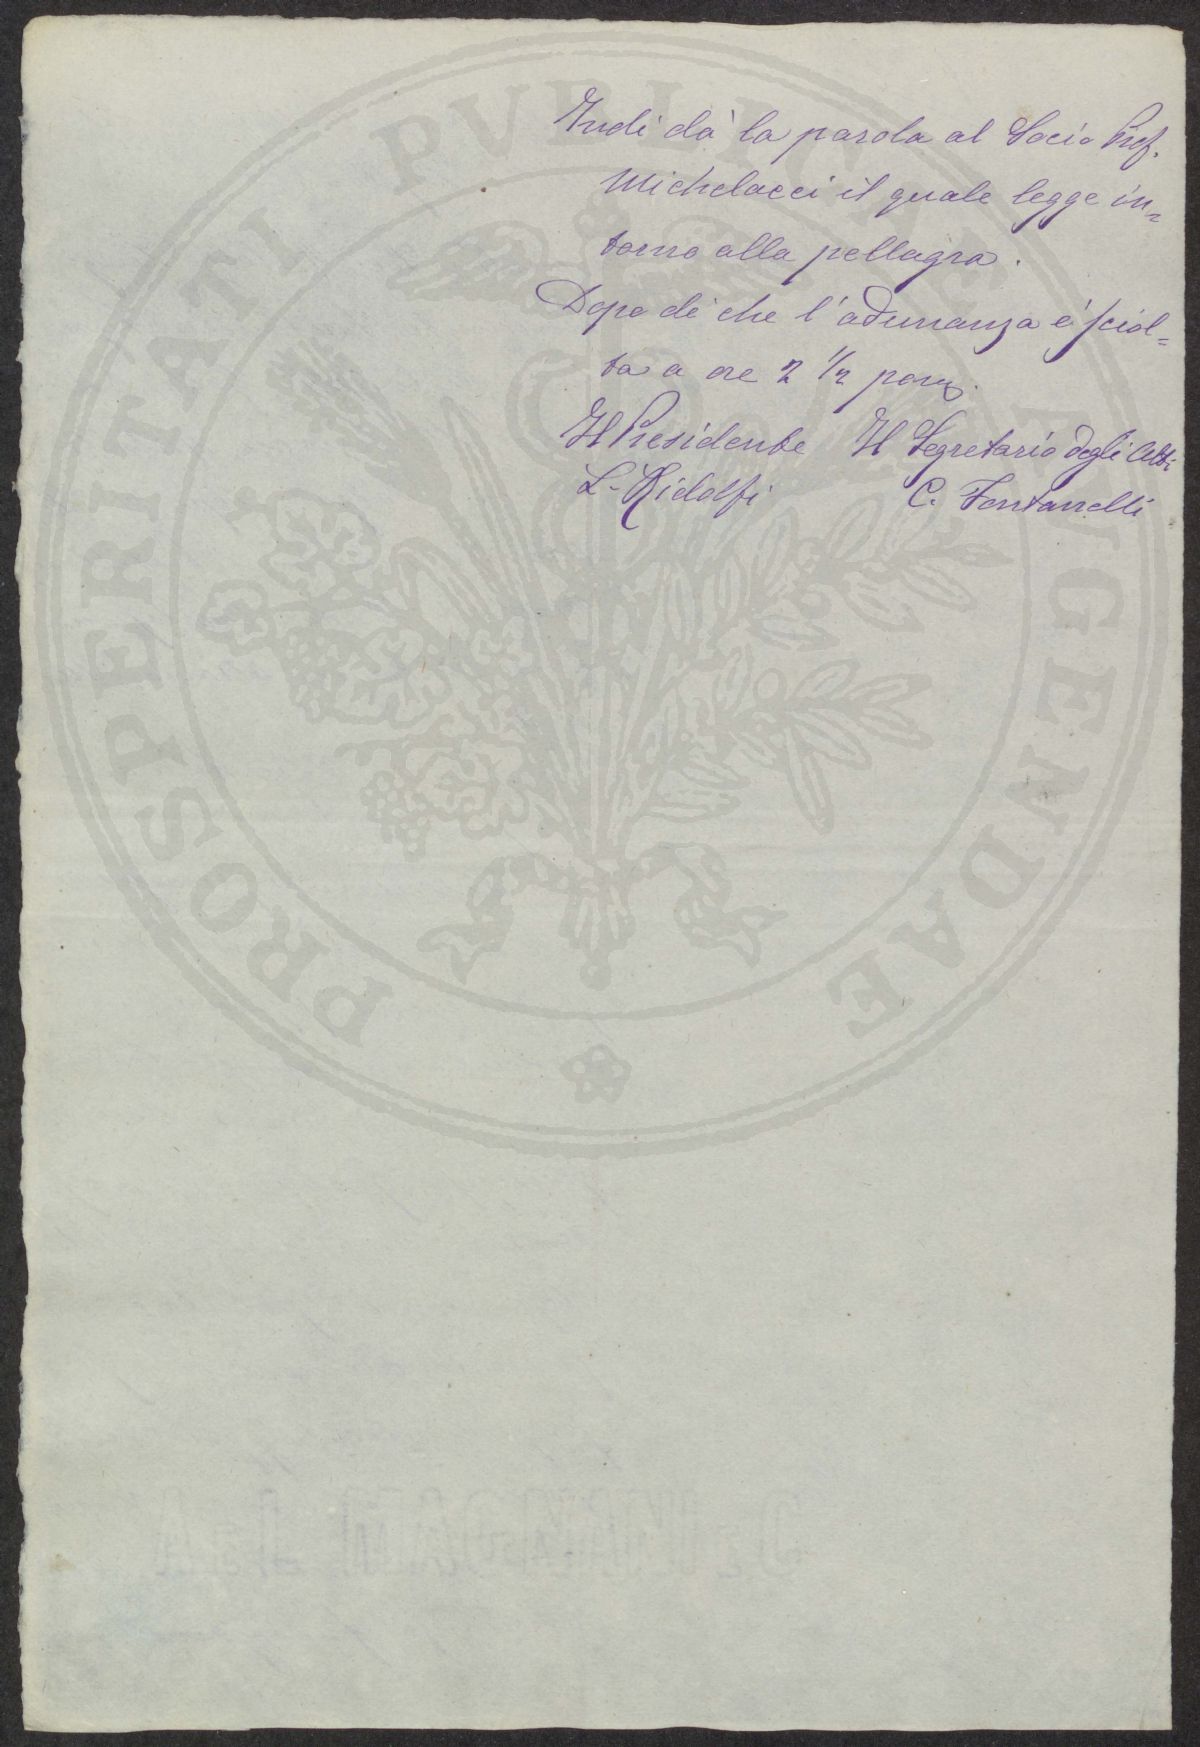 Indi dà la parola al Socio Prof.
Michelacci il quale legge in=
torno alla pellagra.
Dopo di che l'adunanza è sciol=
ta a ore 2 ½ pom.
Il Presidente Il Segretario degli Atti
L. Ridolfi C. Fontanelli
PROSPERITATI PVBLICAE AVGENDAE